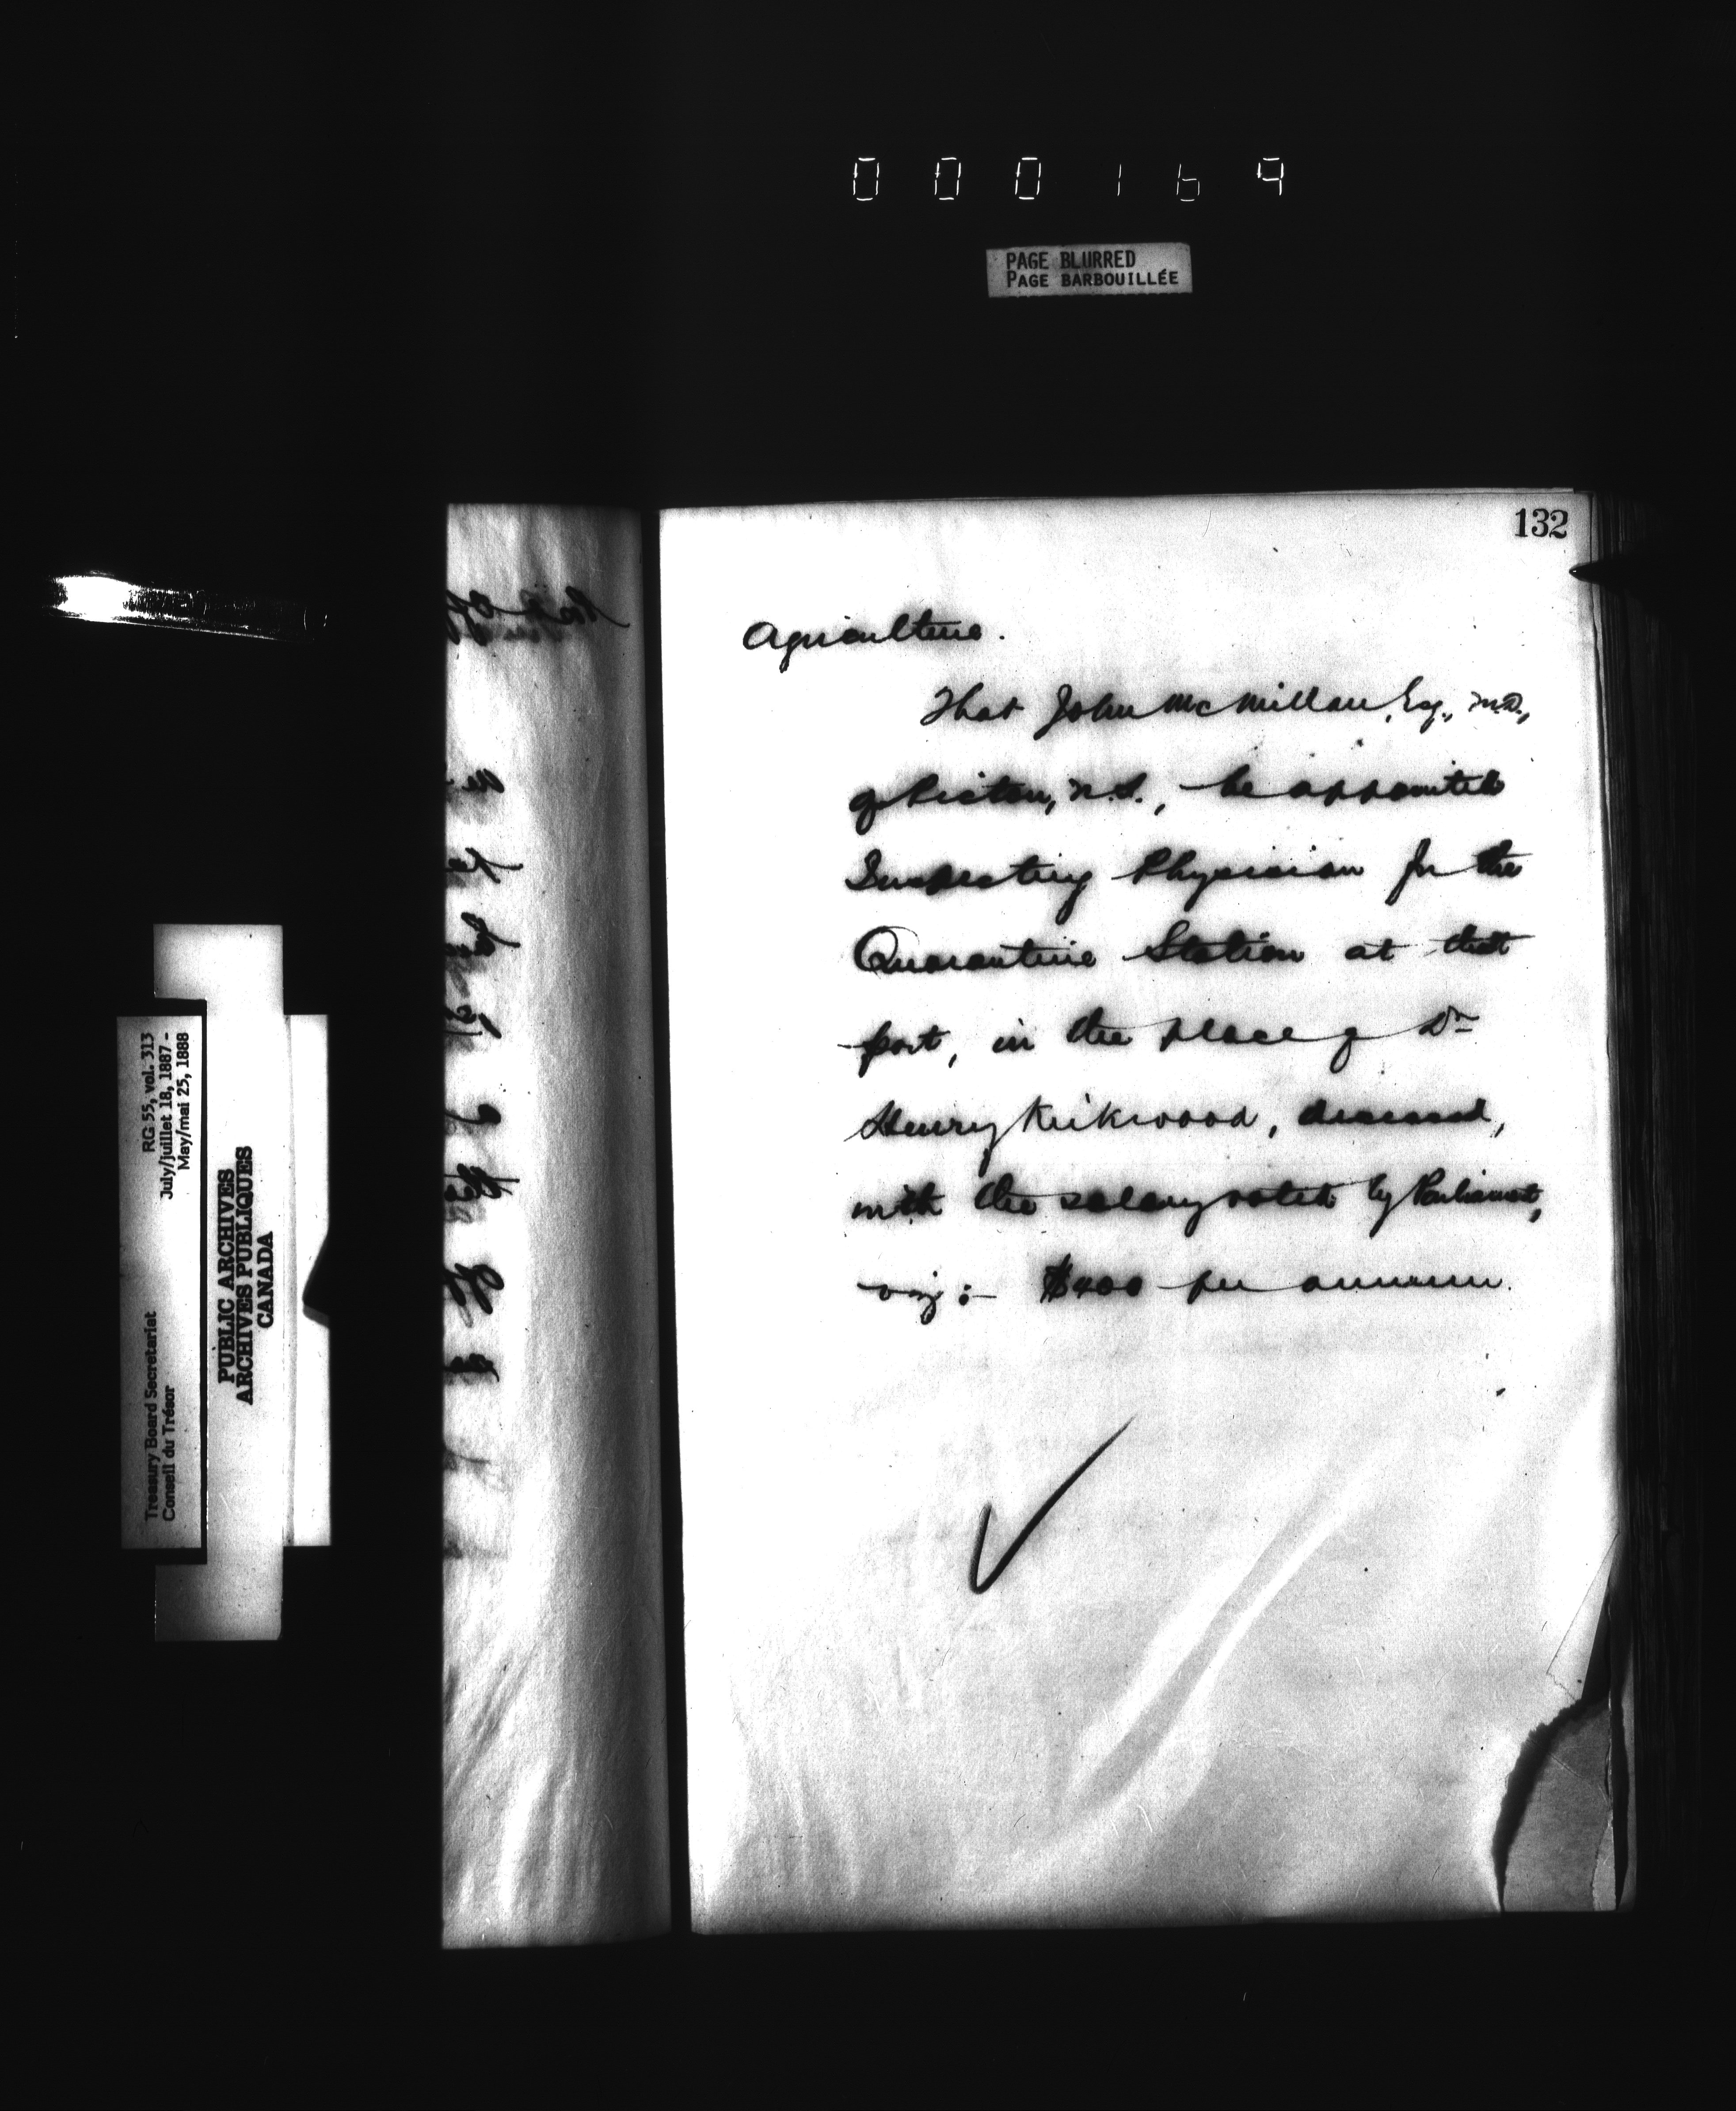 000169
PAGE BLURRED
PAGE BARBOUILLÉE
132
Agriculture.
That John McMillan, Esq., M.D.,
of Pictou, N.S., be appointed
Inspecting Physician for the
Quarantine Station at that
port, in the place of Dr
Henry Kirkwood, deceased,
with the salary voted by Parliament,
viz:- $400 per annum.
RG 55, vol. 313
July/juillet 18, 1887 -
May/mai 25, 1888
Treasury Board Secretariat
Conseil du Trésor
PUBLIC ARCHIVES
ARCHIVES PUBLIQUES
CANADA